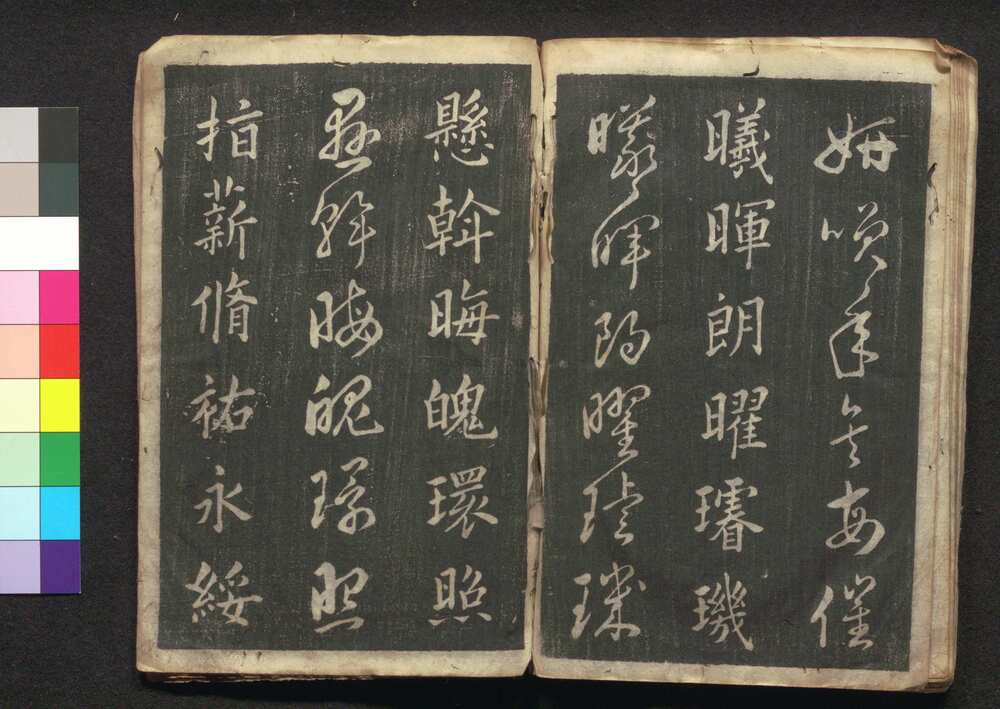 妍咲年矢每催
曦暉朗曜璿璣
曦暉朗曜璿璣
懸斡晦魄環照
懸斡晦魄環照
指薪脩祐永綏